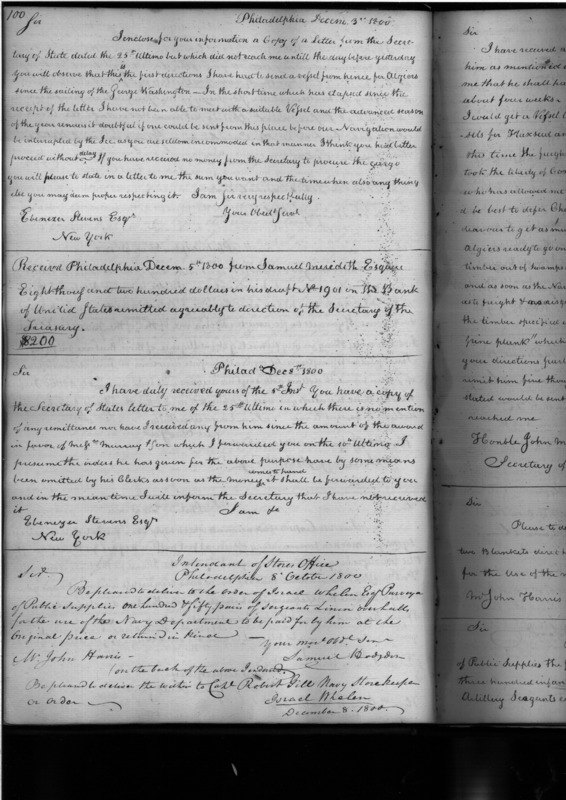 100 Sir
Philadelphia Decem 3rd 1800
I enclose for your information a Copy of a Letter from the Secre-
tary of State dated the 25th Ultimo but which did not reach me untill the day before yesterday
You will observe that this is the first directions I have had to send a vessel from hence for Algiers
since the sailing of the George Washington - In the short time which has elapsed since the
receipt of the letter I have not been able to meet with a suitable Vessel and the advanced season
of the year renders it doubtful if one could be sent from this place before our Navigation would
be interrupted by the Ice, as you are seldom incommoded in that manner I think you had better
proceed without delay If you have received no money from the Secretary to procure the cargo
you will please to state in a letter to me the sum you want and the time when also any thing
else you may deem proper respecting it. I am Sir very respectfully
Your Obedt Servt
Ebenezer Stevens Esqr
New York
Received Philadelphia Decem. 5th 1800 from Samuel Meredith Esquire
Eight thousd and two hundred dollars in his draft No 1901 on the Bank
of United States remitted agreeably to direction of the Secretary of the
Treasury.
$8200
Sir
Philad Dec 8th 1800
I have duly received yours of the 5th Inst You have a copy of
the Secretary of States letter to me of the 25th Ultimo in which there is no mention
of any remittance nor have I received any from him since the amount of the award
in favor of Messrs Murray & Son which I forwarded you on the 10th Ultimo I
presume the orders he has given for the above purpose have by some means
been omitted by his Clerks as soon as the money comes to hand it shall be forwarded to you
and in the mean time I will inform the Secretary that I have not received
it
I am &c
Ebenezer Stevens Esqr
New York
Intendant of Stores Office
Philadelphia 8th October 1800
Sir
Be pleased to deliver to the order of Israel Whelen Esq Purveyor
of Public Supplies one hundred & fifty pairs of Sergeants Linen overhalls
for the use of the Navy Department to be paid for by him at the
original price or returned in kind
Your most Obdt Serv
Samuel Hodgdon
Mr John Harris
(on the back of the above Indorsed)
Be pleased to deliver the within to Capt Robert Gill Navy Store keeper
or order
Israel Whelen
December 8. 1800
Sir
I have received a
him as mentioned
me that he shall ha
about four weeks
I could get a Vessel
sels for Flaxseed an
this time the freight
took the liberty of Con
who has allowed me
d be best to defer
deavour to get as mu
Algiers ready to go on
timber out of swamps
and as soon as the Nav
the timber specified
pine plank" which
your directions
remit him five thou
stated would be sent
reached me
Honble John M
Secretary of
Sir
Please to d
two Blankets direct
for the use of the
Mr John Harris
Sir
of Public Supplies the
three hundred infan
Artillery Sergeants